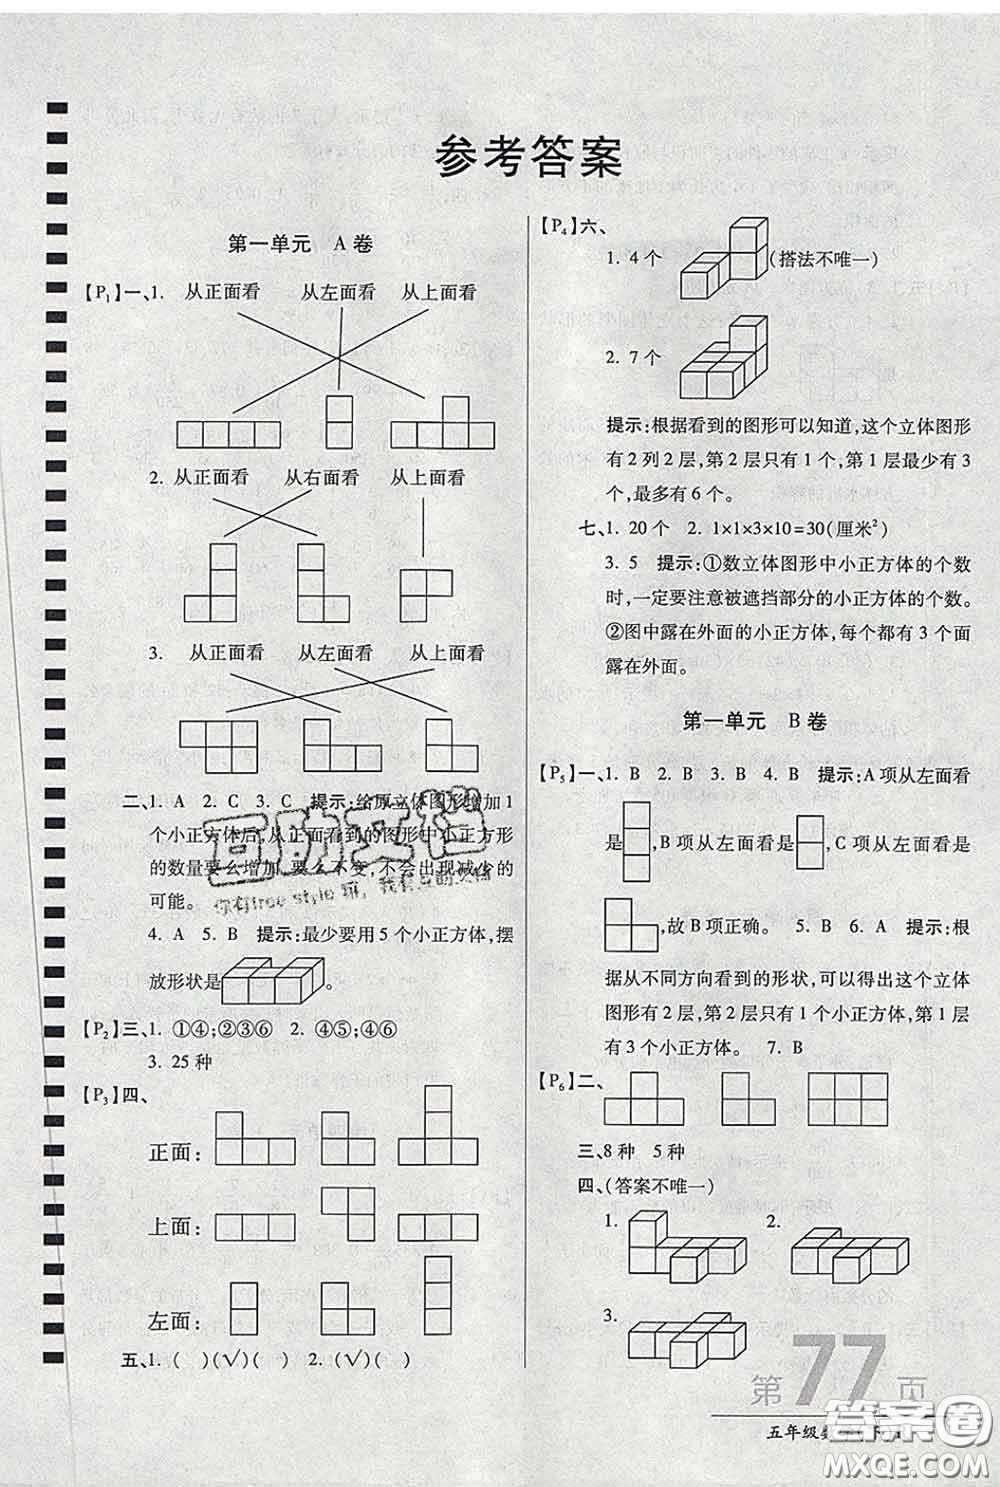 参考答案
第一单元 A 卷
【P₁】一、1. 从正面看 从左面看 从上面看
2. 从正面看 从右面看 从上面看
3. 从正面看 从左面看 从上面看
二、1. A 2. C 3. C 提示:给原立体图形增加1
个小正方体后,从正面看到的图形中小正方形
的数量要么增加,要么不变,不会出现减少的
可能。
4. A 5. B 提示:最少要用 5 个小正方体,摆
放形状是 。
【P₂】三、1. ①④;②③⑥ 2. ④⑤;④⑥
3. 25 种
【P₃】四、
正面:
上面:
左面:
五、1. ( )(√)( ) 2. (√)( )
【P₄】六、
1. 4 个 (搭法不唯一)
2. 7 个
提示:根据看到的图形可以知道,这个立体图形
有 2 列 2 层,第 2 层只有 1 个,第 1 层最少有 3
个,最多有 6 个。
七、1. 20 个 2. 1×1×3×10=30(厘米²)
3. 5 提示:①数立体图形中小正方体的个数
时,一定要注意被遮挡部分的小正方体的个数。
②图中露在外面的小正方体,每个都有 3 个面
露在外面。
第一单元 B 卷
【P₅】一、1. B 2. B 3. B 4. B 提示:A 项从左面看
是 ,B 项从左面看是 ,C 项从左面看是
,故 B 项正确。 5. B 6. A 提示:根
据从不同方向看到的形状,可以得出这个立体
图形有 2 层,第 2 层只有 1 个小正方体,第 1 层
有 3 个小正方体。 7. B
【P₆】二、
三、8 种 5 种
四、(答案不唯一)
1. 2.
3.
第 77 页
五年级数
互助文档
你有free style 嘛,我有互助文档
答案圈
MXQE.COM